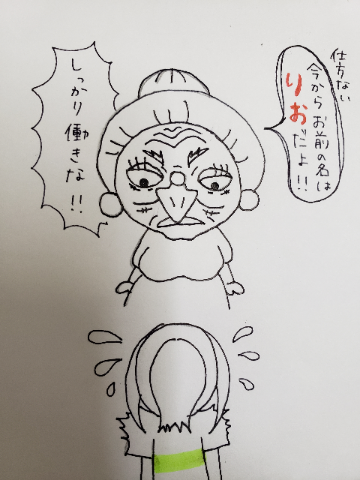 仕方ない
今からお前の名は
りおだよ!!
しっかり働きな!!